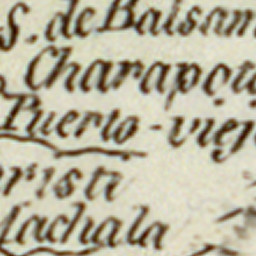 S. de Balsam
Charapot
Puerto-viej
risti
achala